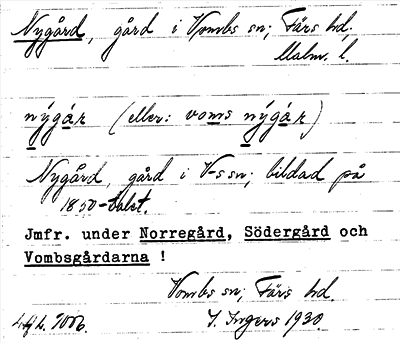 Nygård, gård i Vombs sn; Färs hd.
Malm. l.
nýgår (eller: voms nýgår)
Nygård, gård i V-s sn; bildad på
1850-talet.
Jmfr. under Norregård, Södergård och
Vombsgårdarna !
Vombs sn; Färs hd
I. Ingers 1930